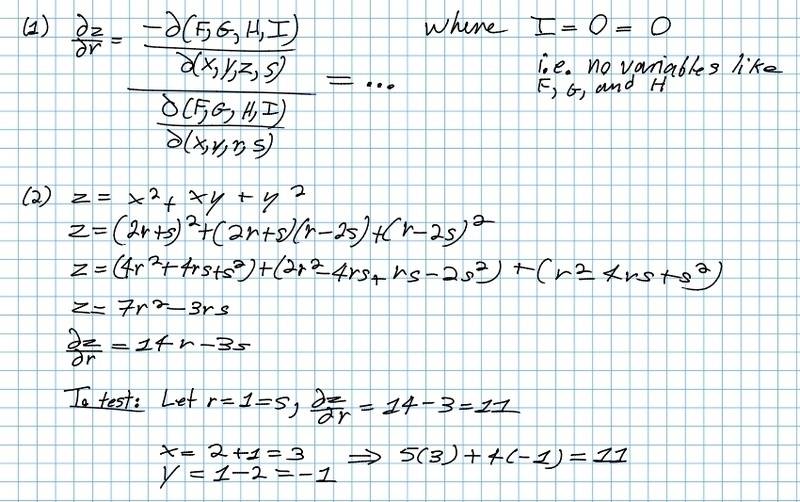 (1) ∂z/∂r = (-∂(F,G,H,I)/∂(x,y,z,s)) / (∂(F,G,H,I)/∂(x,y,r,s)) = ... where I = 0 = 0
i.e. no variables like
F, G, and H
(2) z = x² + xy + y²
z = (2r+s)² + (2r+s)(r-2s) + (r-2s)²
z = (4r²+4rs+s²) + (2r²-4rs+rs-2s²) + (r²-4rs+s²)
z = 7r² - 3rs
∂z/∂r = 14r - 3s
To test: Let r = 1 = s, ∂z/∂r = 14 - 3 = 11
x = 2+1 = 3 ⇒ 5(3) + 4(-1) = 11
y = 1-2 = -1